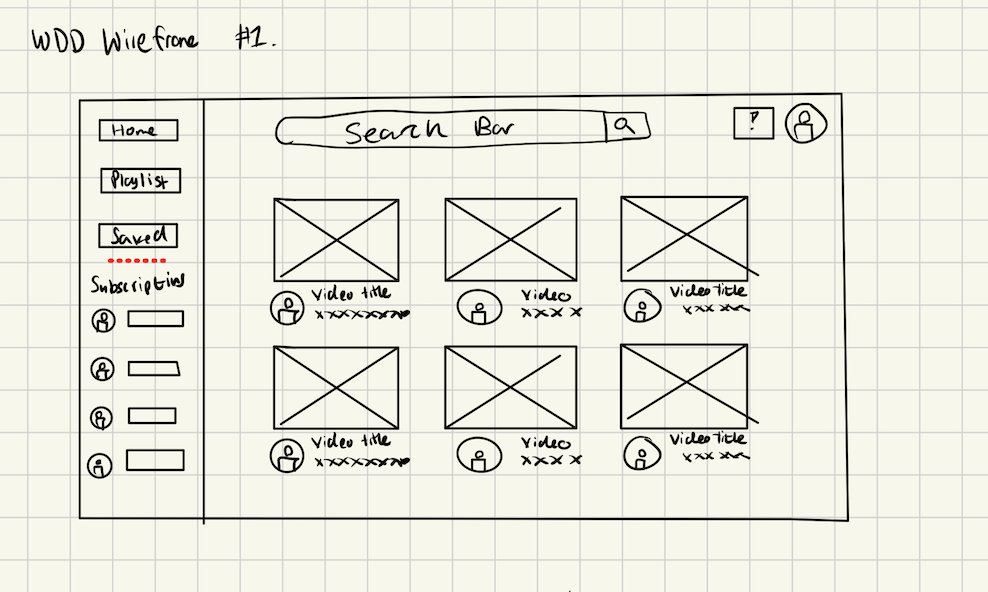 WDD Wireframe #1.
Home
Playlist
Saved
Subscriptions
Search Bar
!
Video title
xxxxxxxx
Video
xxxx
Video Title
xxx xxx
Video title
xxxxxxxx
Video
xxxx
Video Title
xxx xxx